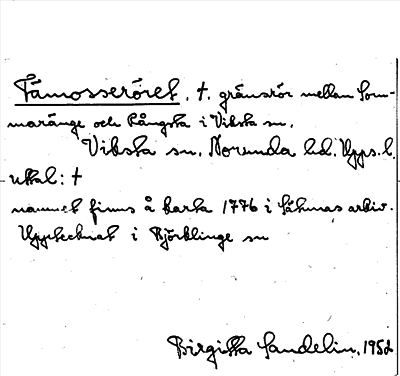 Fämosseröret, †. gränsrör mellan Som-
maränge och Rångsta i Viksta sn.
Viksta sn. Norunda hd. Upps. l.
uttal: †
namnet finns å karta 1776 i Sätunas arkiv.
Upptecknat i Björklinge sn
Birgitta Sandelin, 1952